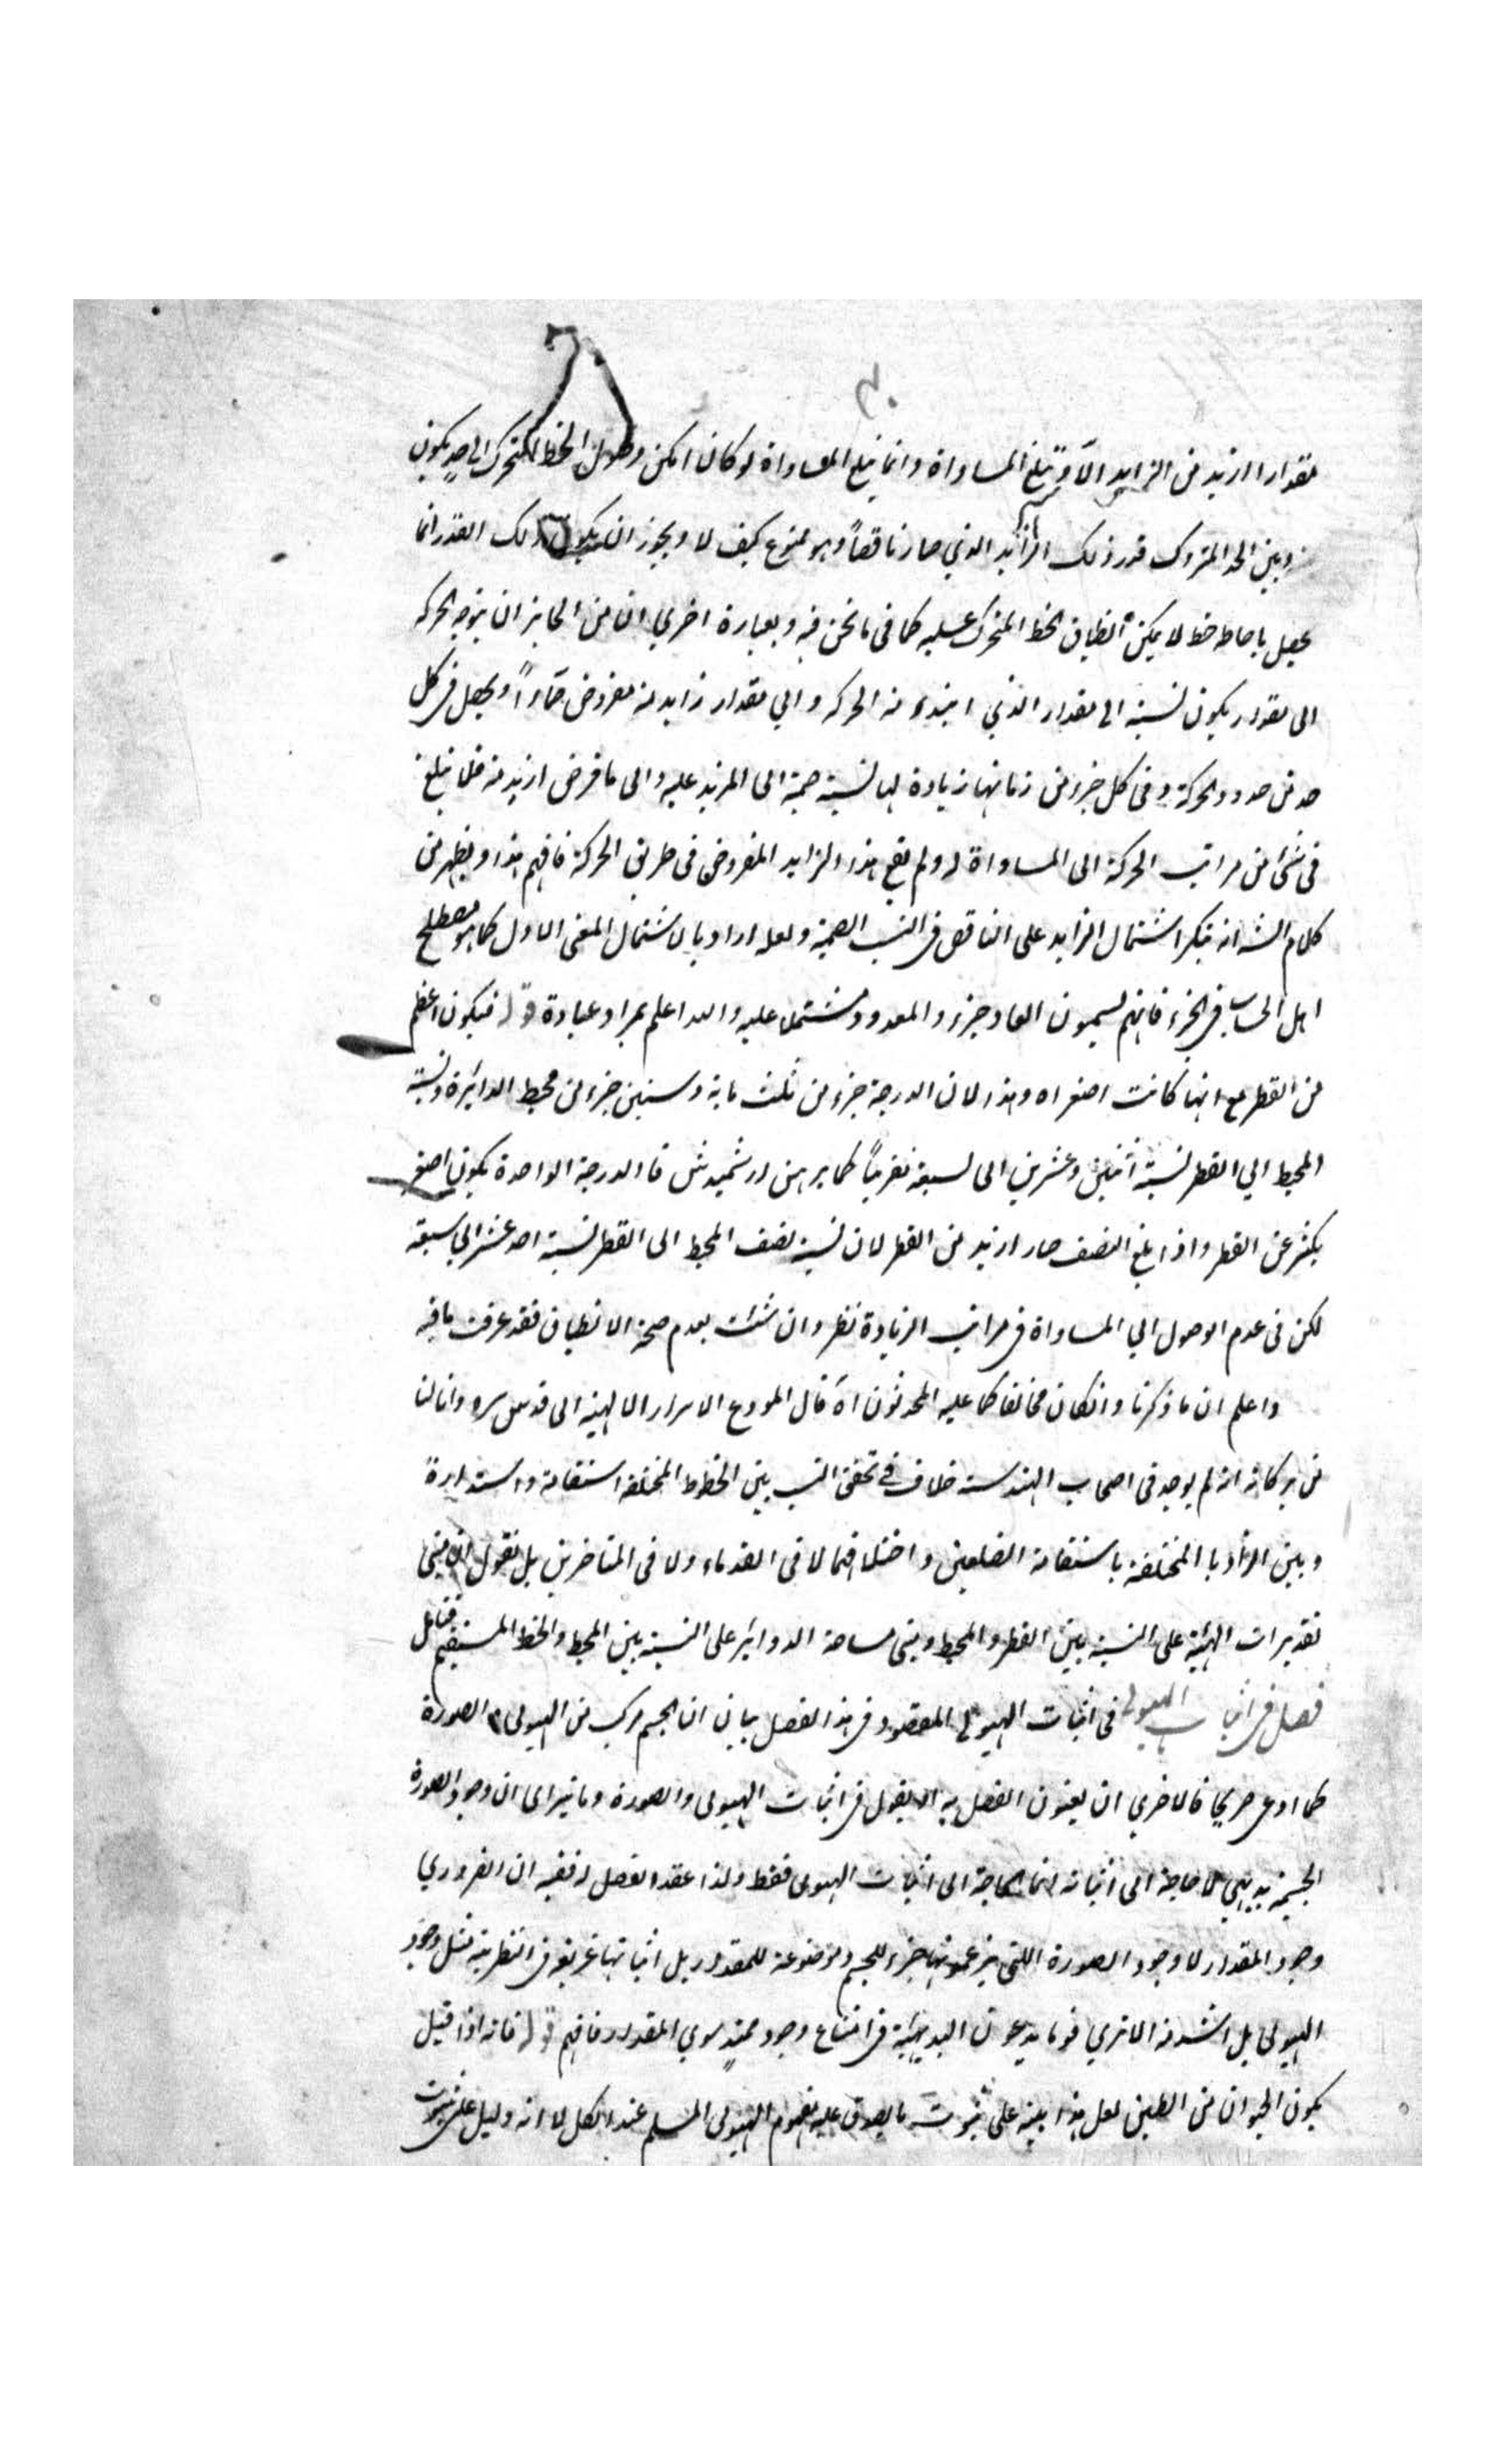 مقدارا ازيد من الزايد الا وتبلغ المساواة وانما تبلغ المساواة لو كان امكن وصول الخط المتحرك الى حد يكون
وبين الحد المتروك قدر ذلك الزايد الذي صار ناقصاً وهو ممنوع كيف لا ويجوز ان يكون ذلك القدر انما
يحصل باحاطة خط لا يمكن انطباق الخط المتحرك عليه كما فى ما نحن فيه وبعبارة اخرى ان من الجايز ان يتوجه الحركة
الى مقدار يكون نسبته الى مقدار الذي ابتدء منه الحركة والى مقدار زايد منه مفروض ويحصل فى كل
حد من حدود الحركة وفى كل جزء من زمانها زيادة لها نسبة صمية الى المزيد عليه والى ما فرض ازيد منه فلا تبلغ
فى شئ من مراتب الحركة الى المساواة له ولم يقع هذا الزايد المفروض فى طريق الحركة فافهم هذا ويظهر من
كلام الش انه ينكر اشتمال الزايد على الناقص فى النسب الصمية ولعله اراد بالاشتمال المعنى الاول كما هو مصطلح
اهل الحساب فى الجزء فانهم يسمون العاد جزء والمعدود مشتملا عليه والله اعلم بمراد عباده قوله فيكون اعظم
من القطر مع انها كانت اصغر اه وهذا لان الدرجة جزء من ثلث ماية وستين جزء من محيط الدائرة ونسبة
المحيط الي القطر نسبة اثنين وعشرين الى سبعة تقريباً كما برهن ارشميدش فالدرجة الواحدة يكون اصغر
بكثير عن القطر واذا بلغ النصف صار ازيد من القطر لان نسبة نصف المحيط الى القطر نسبة احد عشر الي سبعة
لكن فى عدم الوصول الي المساواة فى مراتب الزيادة نظر وان شئت بعدم صحة الانطباق فقد عرفت ما فيه
واعلم ان ما ذكرنا وانكان مخالفا كما عليه المحدثون اه قال المودع الاسرار الالهية ابى قدس سره وانا لنا
من بركاته انه لم يوجد فى اصحاب الهندسة خلاف فى تحقق النسب بين الخطوط المختلفة استقامة واستدارة
وبين الزوايا المختلفة باستقامة الضلعين واختلافهما لا فى القدماء ولا فى المتاخرين بل نقول ان مبنى
تقديرات الهيئة على النسبة بين القطر والمحيط ومبنى مساحة الدوائر على النسبة بين المحيط والخط المستقيم فتامل
فصل فى اثبات الهيولى فى اثبات الهيولى المقصود فى هذا الفصل بيان ان الجسم مركب من الهيولى والصورة
كما ادعى صريحا فالاحرى ان يعنون الفصل به او يقول فى اثبات الهيولى والصورة وما يترااى ان وجود الصورة
الجسمية بديهي لا حاجة الى اثباته انما الحاجة الى اثبات الهيولى فقط ولذا عقد الفصل له ففيه ان الضروري
وجود المقدار لا وجود الصورة اللتى يزعمونها جزء للجسم وموضوعة للمقدار بل اثباتها غريق فى النظرية مثل وجود
الهيولى بل اشد منه الا ترى قوما يدعون البديهية فى امتناع وجود ممتد سوى المقدار فافهم قوله فانه اذا قيل
يكون الحيوان من الطين لعل هذا بينة على ثبوت ما يصدق عليه مفهوم الهيولى المسلم عند الكل لا انه دليل على ثبوت